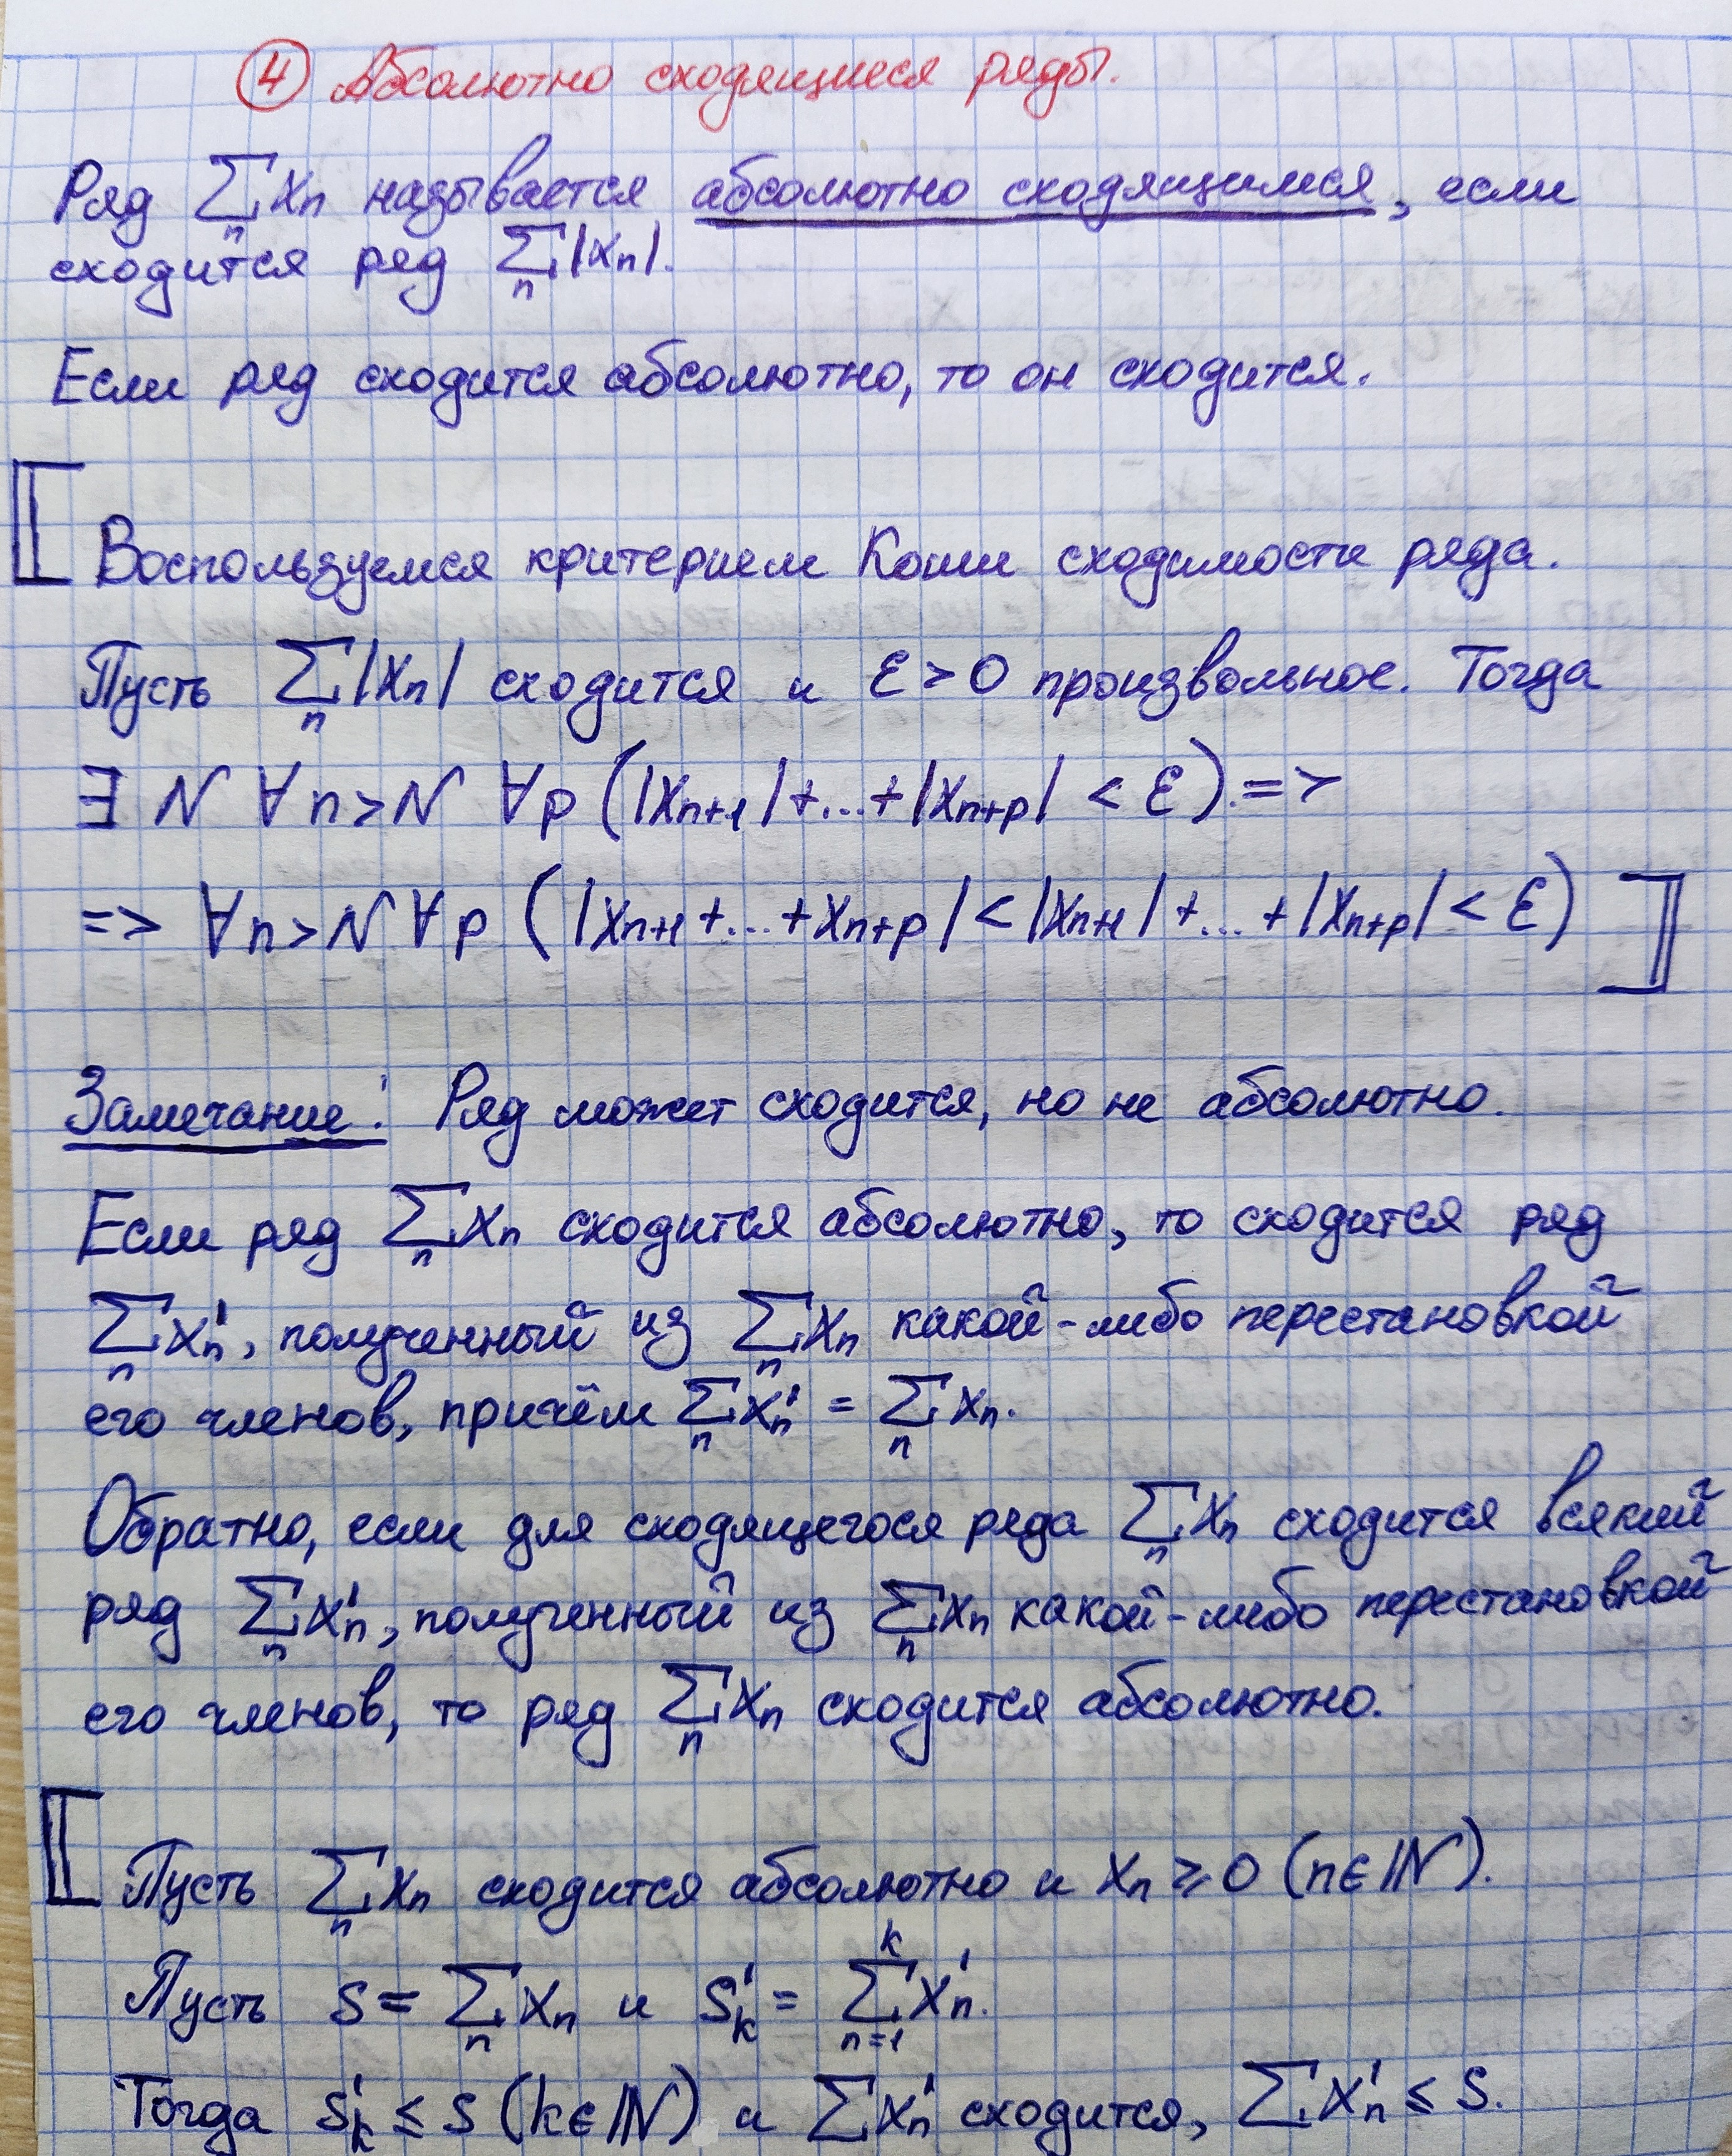 ④ Абсолютно сходящиеся ряды.
Ряд ∑ₙ xₙ называется абсолютно сходящимся, если
сходится ряд ∑ₙ |xₙ|.
Если ряд сходится абсолютно, то он сходится.
⟦ Воспользуемся критерием Коши сходимости ряда.
Пусть ∑ₙ |xₙ| сходится и ε > 0 произвольное. Тогда
∃ N ∀n>N ∀p (|xₙ₊₁|+...+|xₙ₊ₚ| < ε) =>
=> ∀n>N ∀p (|xₙ₊₁+...+xₙ₊ₚ| < |xₙ₊₁|+...+|xₙ₊ₚ| < ε) ⟧
Замечание: Ряд может сходится, но не абсолютно.
Если ряд ∑ₙ xₙ сходится абсолютно, то сходится ряд
∑ₙ x'ₙ, полученный из ∑ₙ xₙ какой-либо перестановкой
его членов, причём ∑ₙ x'ₙ = ∑ₙ xₙ.
Обратно, если для сходящегося ряда ∑ₙ xₙ сходится всякий
ряд ∑ₙ x'ₙ, полученный из ∑ₙ xₙ какой-либо перестановкой
его членов, то ряд ∑ₙ xₙ сходится абсолютно.
⟦ Пусть ∑ₙ xₙ сходится абсолютно и xₙ ⩾ 0 (n∈ℕ).
Пусть S = ∑ₙ xₙ и S'ₖ = ∑ₙ₌₁ᵏ x'ₙ.
Тогда S'ₖ ≤ S (k∈ℕ) и ∑ x'ₙ сходится, ∑ x'ₙ ≤ S.